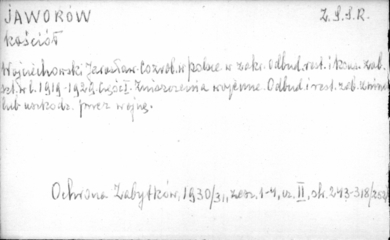 JAWORÓW Z.S.S.R.
kościół
Wojciechowski Jarosław. Co zrob. w Polsce w zakr. odbud. rest. i kons. zab.
szt. w l. 1919-1929. Część I. Zniszczenia wojenne. Odbud. i rest. zab.
lub uszkodz. przez wojnę.
Ochrona Zabytków, 1930/31, zesz. 1-4, cz. II, str. 243-318